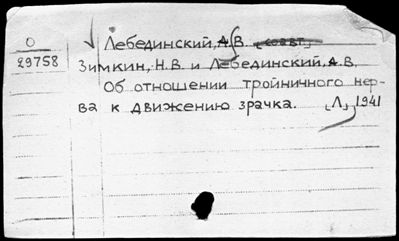 О
29758
Лебединский, А.В. [соавт.]
Зимкин, Н.В. и Лебединский, А.В.
Об отношении тройничного нер-
ва к движению зрачка. [Л., 1941